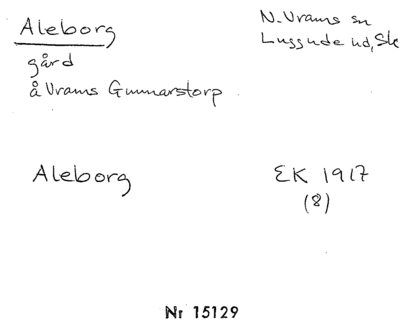 Aleborg
N. Vrams sn
Luggude hd, Sk
gård
å Vrams Gunnarstorp
Aleborg
EK 1917
(8)
Nr 15129